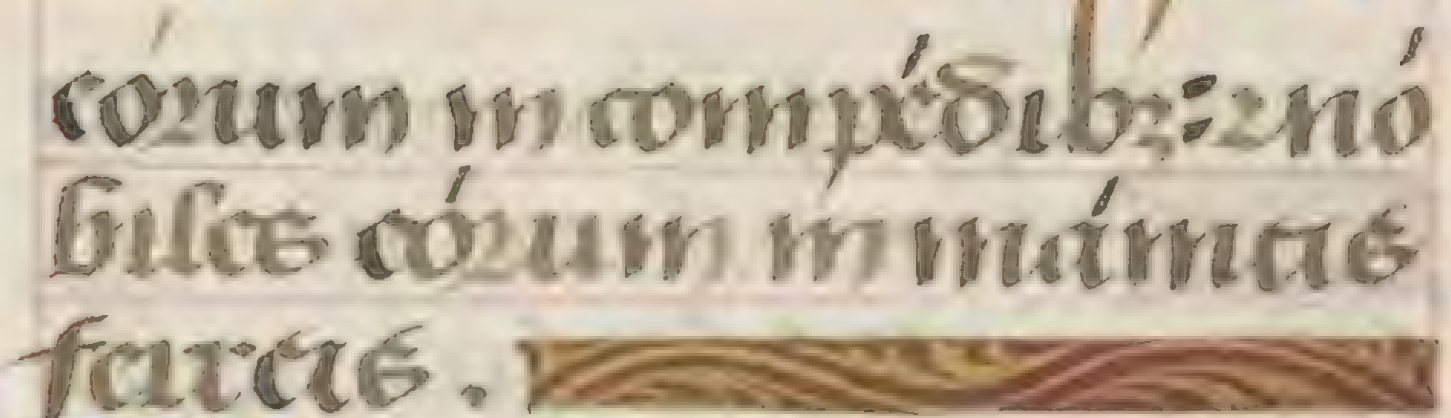 eórum in compédibꝫ: ⁊ nó
biles eórum in mánicis
ferreis.